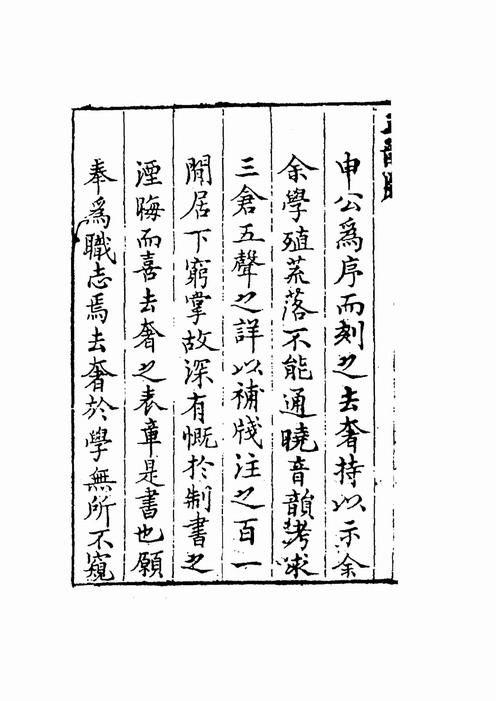 申公爲序而刻之去奢持以示余
余學殖荒落不能通曉音韻考求
三倉五聲之詳以補牋注之百一
閒居下窮掌故深有慨於制書之
湮晦而喜去奢之表章是書也願
奉爲職志焉去奢於學無所不窺